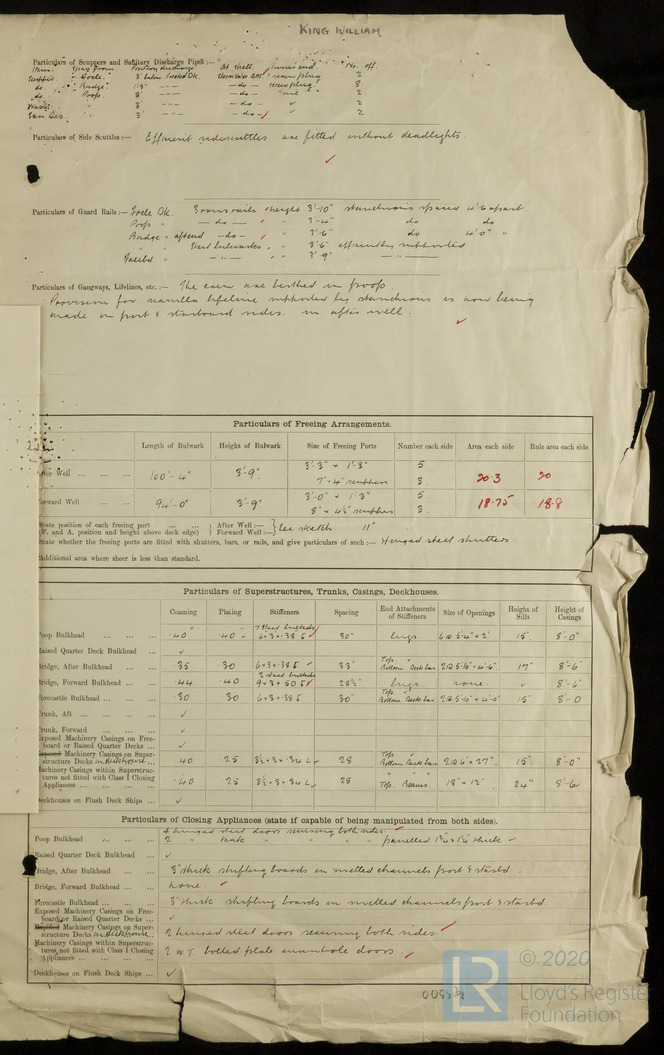 KING WILLIAM
Particulars of Scuppers and Sanitary Discharge Pipes :—
Item. From Position discharge At shell Inner end No. off.
3' below Freebd Dk. Storm Valve G.M. screw plug 2
do Bridge 1'3" — do — screw plug 8
do Poop 3' — do — 2
3' — do — ✓ 2
San Dis. 3' — do — ✓ 2
Particulars of Side Scuttles :— Efficient sidescuttles are fitted without deadlights.
Particulars of Guard Rails :— Focle Dk. 3 rows rails height 3'-10" stanchions spaced 4'-6 apart
Poop " — do — " 3'-4" do do
Bridge " aftend — do — " 3'-6" do 4'-0" "
" " Steel bulwarks " 3'6" efficiently supported
Freebd " — " — " 3'-9" — " —
Particulars of Gangways, Lifelines, etc. :— The crew are berthed in poop
Provision for manilla lifeline supported by stanchions is now being
made on port & starboard sides. in after well.
Particulars of Freeing Arrangements.
Length of Bulwark Height of Bulwark Size of Freeing Ports Number each side Area each side Rule area each side
After Well ... ... ... 100'-4" 3'-9" 3'-3" × 1'-3" 5 20.3 20
7" × 4" scuppers 3
Forward Well ... ... 94'-0" 3'-9" 3'-0" × 1'-3" 5 18.75 18.8
8" × 4½" scuppers 3
State position of each freeing port ... ... ) After Well :— } See sketch 11"
(F. and A. position and height above deck edge) ) Forward Well :—
State whether the freeing ports are fitted with shutters, bars, or rails, and give particulars of such :— Hinged steel shutters.
Additional area where sheer is less than standard.
Particulars of Superstructures, Trunks, Casings, Deckhouses.
Coaming Plating Stiffeners Spacing End Attachments of Stiffeners Size of Openings Height of Sills Height of Casings
Poop Bulkhead ... ... ... .40 .40 6×3×.38 30" lugs 6 @ 5'-4" × 2' 15" 8'-0"
Raised Quarter Deck Bulkhead ... ✓
Bridge, After Bulkhead ... ... .35 .30 6×3×.38 33" Top. ✓ Bottom Deck bar 2 @ 5'-10" × 4'-6" 17" 8'-6"
Bridge, Forward Bulkhead ... ... .44 .40 9×3×.50 28½" lugs none. ✓ 8'-6"
Forecastle Bulkhead ... ... ... 30 30 6×3×.38 30" Top. ✓ Bottom Deck bar 2 @ 5'-10" × 4'-0" 15" 8'-0
Trunk, Aft ... ... ... ... ✓
Trunk, Forward ... ... ... ✓
Exposed Machinery Casings on Free-
board or Raised Quarter Decks ... ✓
Exposed Machinery Casings on Super-
structure Decks in deckhouse ... .40 25 3½×3×.34 L 28 Top. ✓ Bottom Deck bar 2 @ 6' × 27" 15" 8'-0"
Machinery Casings within Superstruc-
tures not fitted with Class I Closing
Appliances ... ... ... ... .40 25 3½×3×.34 L 28 Top. Beams. 18" × 12" 24" 8'-6
Deckhouses on Flush Deck Ships ... ✓
Particulars of Closing Appliances (state if capable of being manipulated from both sides).
4 hinged steel doors securing both sides.
Poop Bulkhead ... ... ... 2 " teak " " " " panelled 1¾ × 1¼ thick
Raised Quarter Deck Bulkhead ... ✓
Bridge, After Bulkhead ... ... 3" thick shifting boards in rivetted channels port & starbd.
Bridge, Forward Bulkhead ... ... None.
Forecastle Bulkhead ... ... ... 3" thick shifting boards in rivetted channels port & starbd
Exposed Machinery Casings on Free-
board or Raised Quarter Decks ... ✓
Exposed Machinery Casings on Super-
structure Decks in deckhouse ... 2 hinged steel doors securing both sides.
Machinery Casings within Superstruc-
tures not fitted with Class I Closing
Appliances ... ... ... ... 2 W.T. bolted plate manhole doors.
Deckhouses on Flush Deck Ships ... ✓
LR
© 2020
Lloyd's Register
Foundation